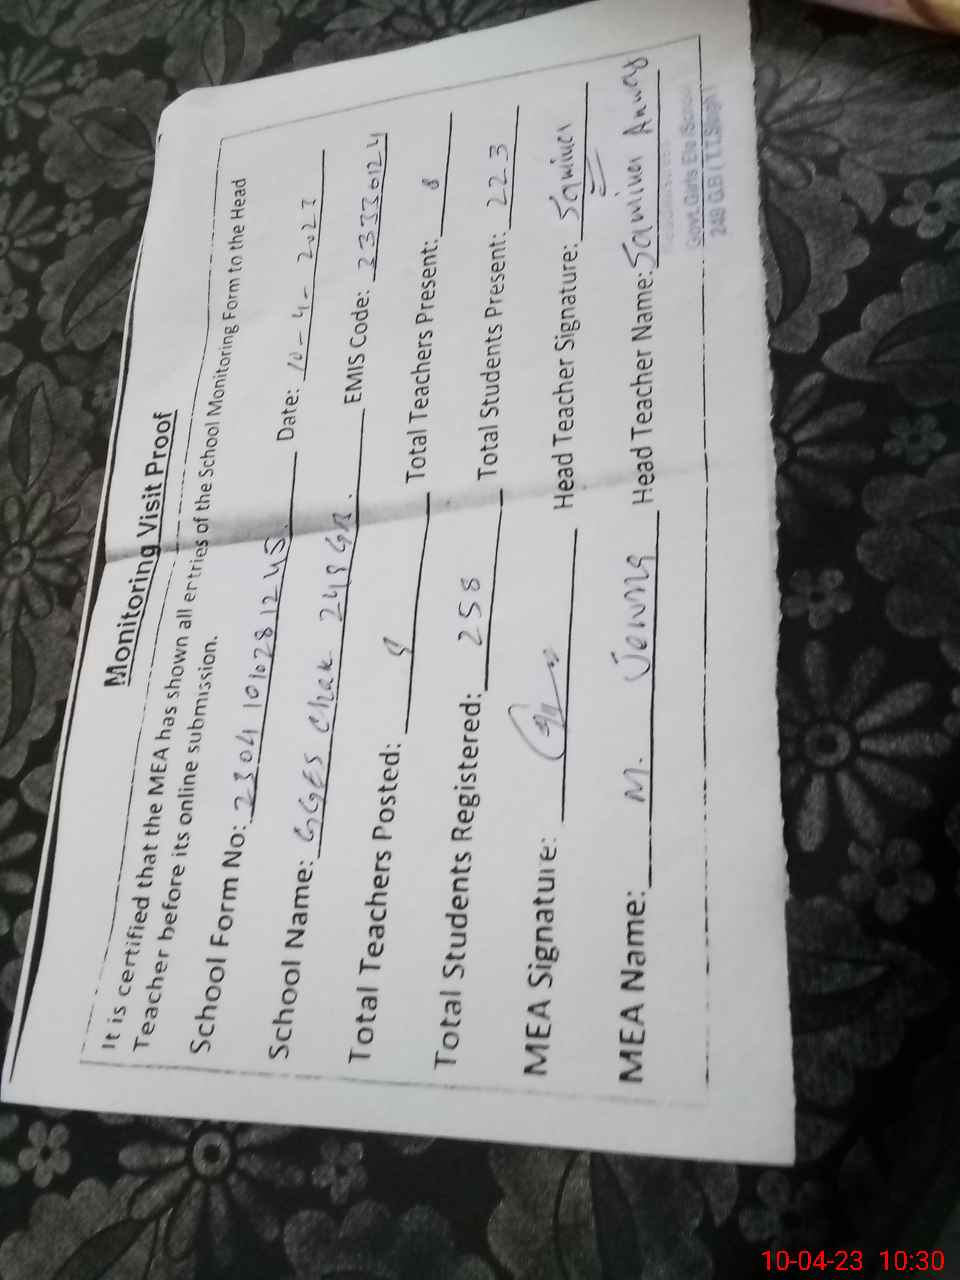 Monitoring Visit Proof
It is certified that the MEA has shown all entries of the School Monitoring Form to the Head
Teacher before its online submission.
School Form No: 2304101028124 Date: 10-4-2023
School Name: GGES Chak 248 GB. EMIS Code: 33330124
Total Teachers Posted: 9 Total Teachers Present: 8
Total Students Registered: 258 Total Students Present: 223
MEA Signature: Head Teacher Signature: Samina
MEA Name: M. Head Teacher Name: Samina Anwar
Govt. Girls Ele School
248 G.B (T.T.Singh)
10-04-23 10:30